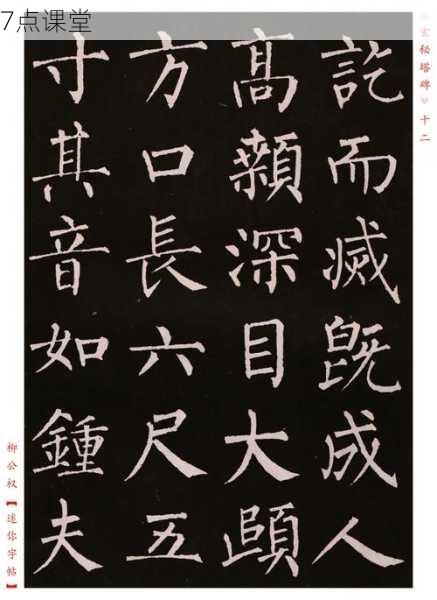 7点课堂
《玄秘塔碑》十二
訖而滅既成人
高顙深目大頤
方口長六尺五
寸其音如鍾夫
柳公权【迷你字帖】